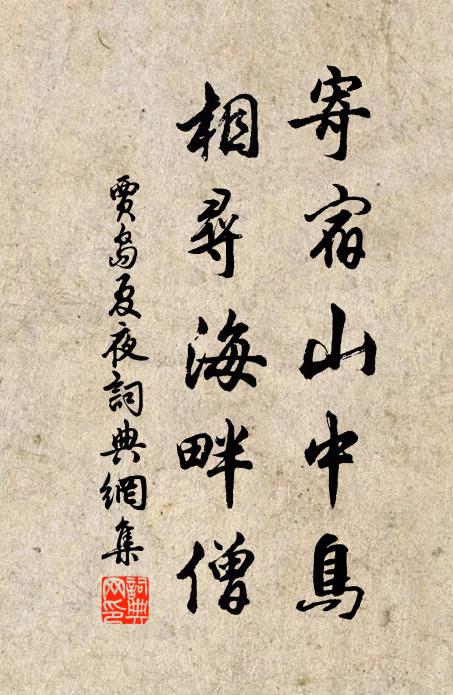 寄宿山中鳥
相尋海畔僧
賈島夏夜詞典網集
詞典網印